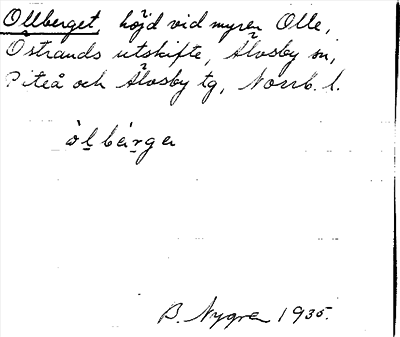 Ollberget, höjd vid myren Olle,
Östrands utskifte, Älvsby sn,
Piteå och Älvsby tg, Norrb. l.
òlbärga
B. Nygren 1935.